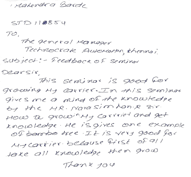 - Mahendra Barde
SJD 110854
TO,
The general Manager
Technocrate Automation, chennai
Subject:- Feedback of Seminar
Dear sir,
This seminar is good for
growing My carrier. In this seminar
gives me a kind of the knowledge
by the MR. Narasimhan sir
How a grow" My carrier and get
knowledge. He is gives one example
of bamboo tree. It is very good for
My carrier because first of all
take all knowledge then grow
Thank you